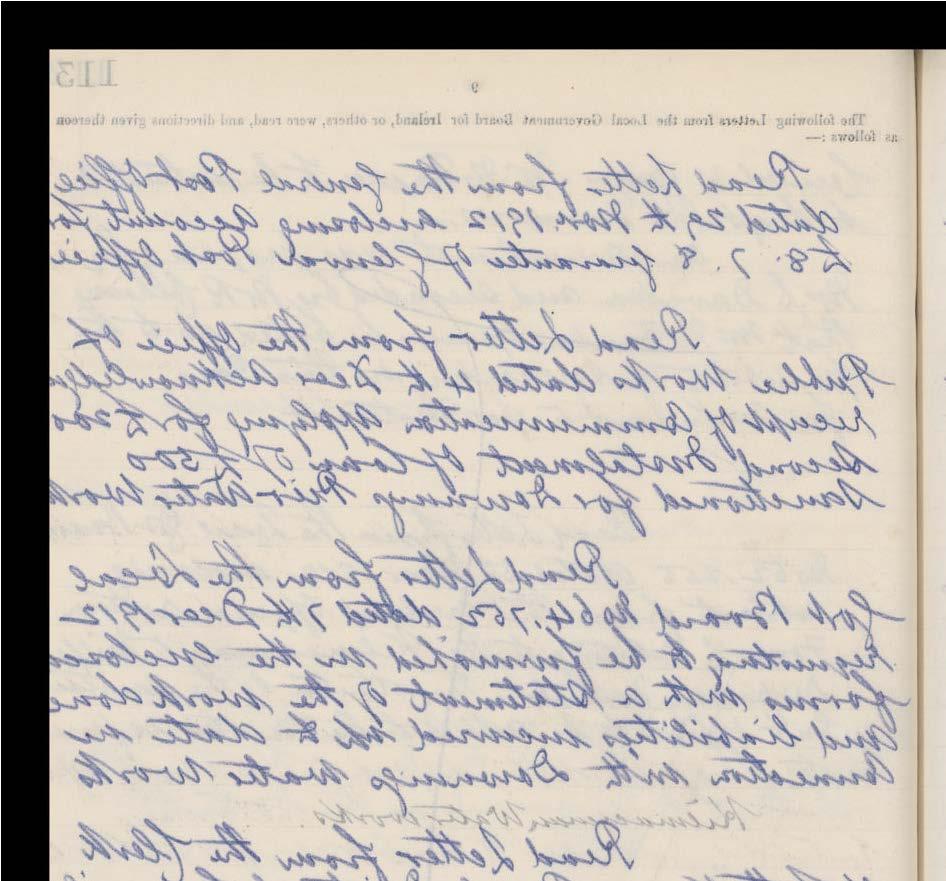 113
9
The following Letters from the Local Government Board for Ireland, or others, were read, and directions given thereon
as follows :—
Read Letter from the General Post Office
dated 29th Novr. 1912 enclosing account for
£8. 7. 8 guarantee of Glenvar Post Office
Read Letter from the Office of
Public Works dated 4th Decr
receipt of Communication applying for £200
Second Instalment of Loan of £500
Sanctioned for Downings Pier Water Works
Read Letter from the Local
Govt Board No 64.752 dated 7th Decr 1912
requesting to be furnished on the enclosed
forms with a Statement of the work done
and liabilities incurred to date in
Connection with Downings Water Works
Water Works
Read Letter from the Clerk